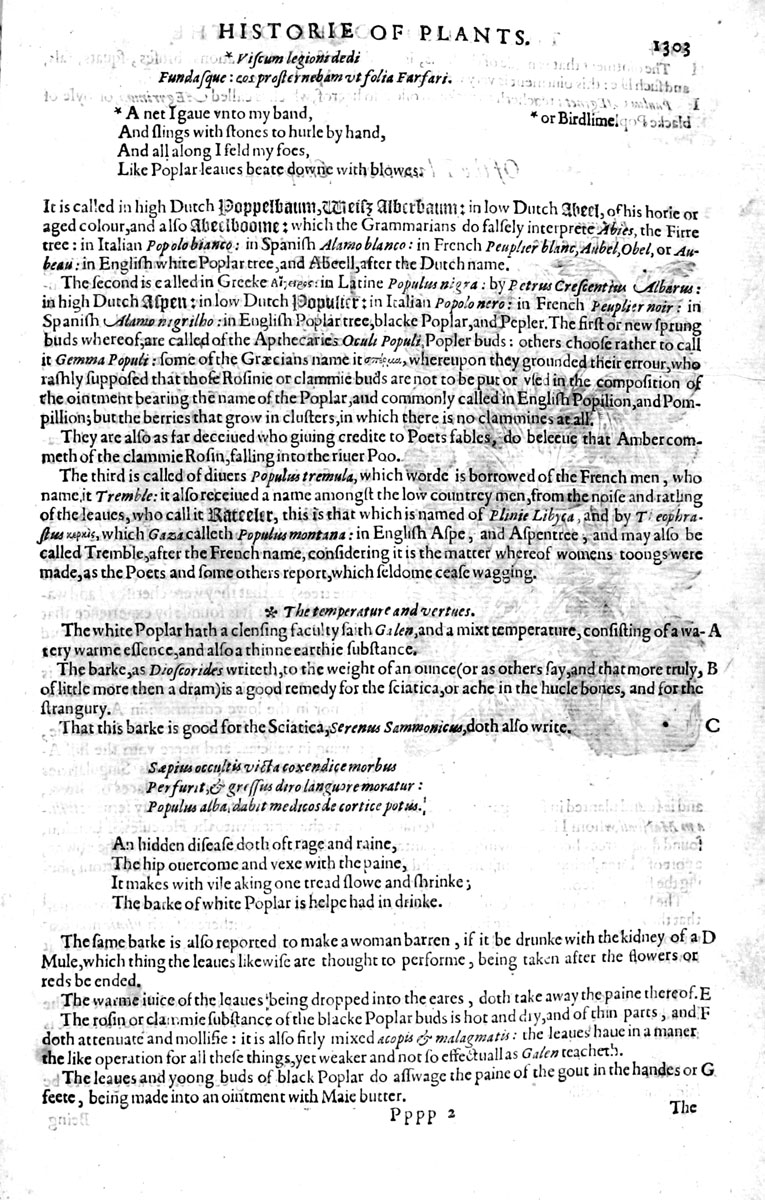 HISTORIE OF PLANTS. 1303
* Viscum legioni dedi
Fundasque: eos prosternebam vt folia Farfari.
* A net I gaue vnto my band, * or Birdlime.
And slings with stones to hurle by hand,
And all along I feld my foes,
Like Poplar leaues beate downe with blowes.
It is called in high Dutch Poppelbaum, Weisz Alberbaum: in low Dutch Abeel, of his horie or
aged colour, and also Abeelboome: which the Grammarians do falsely interprete Abies, the Firre
tree: in Italian Popolo bianco: in Spanish Alamo blanco: in French Peuplier blanc, Aubel, Obel, or Au-
beau: in English white Poplar tree, and Abeell, after the Dutch name.
The second is called in Greeke Αἴγειρος: in Latine Populus nigra: by Petrus Crescentius Albarus:
in high Dutch Aspen: in low Dutch Populier: in Italian Popolo nero: in French Peuplier noir: in
Spanish Alamo nigrilho: in English Poplar tree, blacke Poplar, and Pepler. The first or new sprung
buds whereof, are called of the Apothecaries Oculi Populi, Popler buds: others choose rather to call
it Gemma Populi: some of the Græcians name it whereupon they grounded their errour, who
rashly supposed that those Rosinie or clammie buds are not to be put or vsed in the composition of
the ointment bearing the name of the Poplar, and commonly called in English Popilion, and Pom-
pillion; but the berries that grow in clusters, in which there is no clammines at all.
They are also as far deceiued who giuing credite to Poets fables, do beleeue that Amber com-
meth of the clammie Rosin, falling into the riuer Poo.
The third is called of diuers Populus tremula, which worde is borrowed of the French men, who
name it Tremble: it also receiued a name amongst the low countrey men, from the noise and ratling
of the leaues, who call it Rateeler, this is that which is named of Plinie Libyca, and by Theophra-
stus κερκὶς, which Gaza calleth Populus montana: in English Aspe, and Aspentree, and may also be
called Tremble, after the French name, considering it is the matter whereof womens toongs were
made, as the Poets and some others report, which seldome cease wagging.
* The temperature and vertues.
The white Poplar hath a clensing faculty saith Galen, and a mixt temperature, consisting of a wa- A
tery warme essence, and also a thinne earthie substance.
The barke, as Dioscorides writeth, to the weight of an ounce (or as others say, and that more truly, B
of little more then a dram) is a good remedy for the sciatica, or ache in the hucle bones, and for the
strangury.
That this barke is good for the Sciatica, Serenus Sammonicus, doth also write. C
Sæpius occultis victa coxendice morbus
Perfurit, & gressus diro languore moratur:
Populus alba, dabit medicos de cortice potus.
An hidden disease doth oft rage and raine,
The hip ouercome and vexe with the paine,
It makes with vile aking one tread slowe and shrinke;
The barke of white Poplar is helpe had in drinke.
The same barke is also reported to make a woman barren, if it be drunke with the kidney of a D
Mule, which thing the leaues likewise are thought to performe, being taken after the flowers or
reds be ended.
The warme iuice of the leaues being dropped into the eares, doth take away the paine thereof. E
The rosin or clammie substance of the blacke Poplar buds is hot and dry, and of thin parts, and F
doth attenuate and mollifie: it is also fitly mixed acopis & malagmatis: the leaues haue in a maner
the like operation for all these things, yet weaker and not so effectuall as Galen teacheth.
The leaues and yoong buds of black Poplar do asswage the paine of the gout in the handes or G
feete, being made into an ointment with Maie butter.
Pppp 2 The